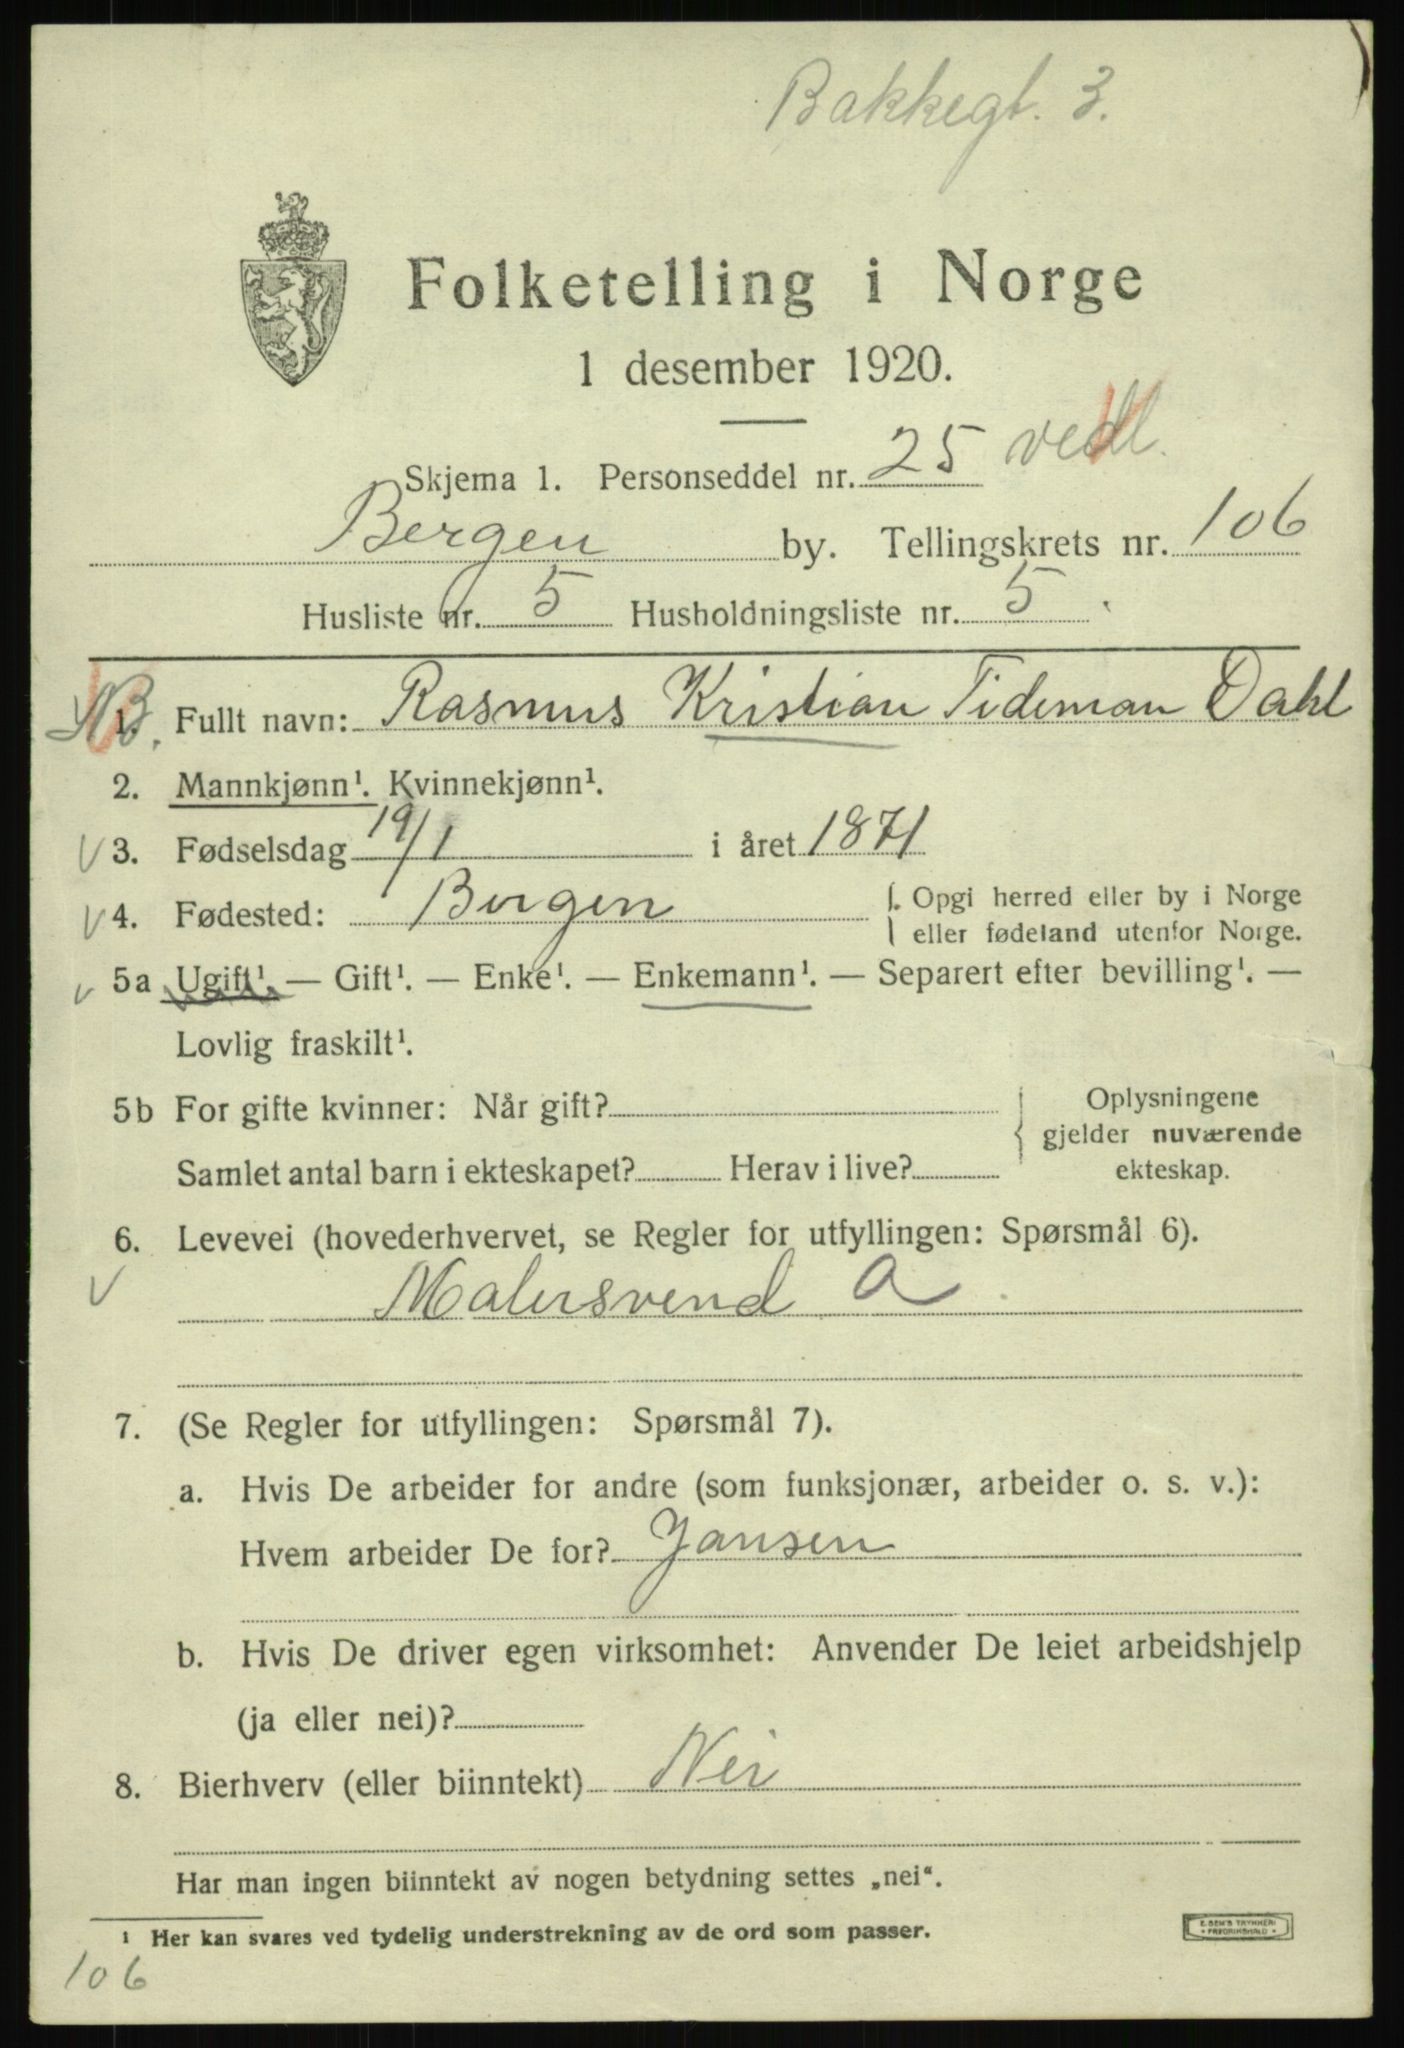 Bakkegt. 3.
Folketelling i Norge
1 desember 1920.
Skjema 1. Personseddel nr. 25 vedl.
Bergen by. Tellingskrets nr. 106
Husliste nr. 5 Husholdningsliste nr. 5
NB. 1. Fullt navn: Rasmus Kristian Tideman Dahl
2. Mannkjønn¹. Kvinnekjønn¹.
V 3. Fødselsdag 19/1 i året 1871
V 4. Fødested: Bergen { Opgi herred eller by i Norge
eller fødeland utenfor Norge.
V 5a Ugift¹. — Gift¹. — Enke¹. — Enkemann¹. — Separert efter bevilling¹. —
Lovlig fraskilt¹.
5b For gifte kvinner: Når gift? } Oplysningene
gjelder nuværende
Samlet antal barn i ekteskapet? Herav i live? ekteskap.
6. Levevei (hovederhvervet, se Regler for utfyllingen: Spørsmål 6).
V Malersvend a
7. (Se Regler for utfyllingen: Spørsmål 7).
a. Hvis De arbeider for andre (som funksjonær, arbeider o. s. v.):
Hvem arbeider De for? Jansen
b. Hvis De driver egen virksomhet: Anvender De leiet arbeidshjelp
(ja eller nei)?
8. Bierhverv (eller biinntekt) Nei
Har man ingen biinntekt av nogen betydning settes „nei“.
¹ Her kan svares ved tydelig understrekning av de ord som passer.
E. SEM'S TRYKKERI
• FREDRIKSHALD •
106